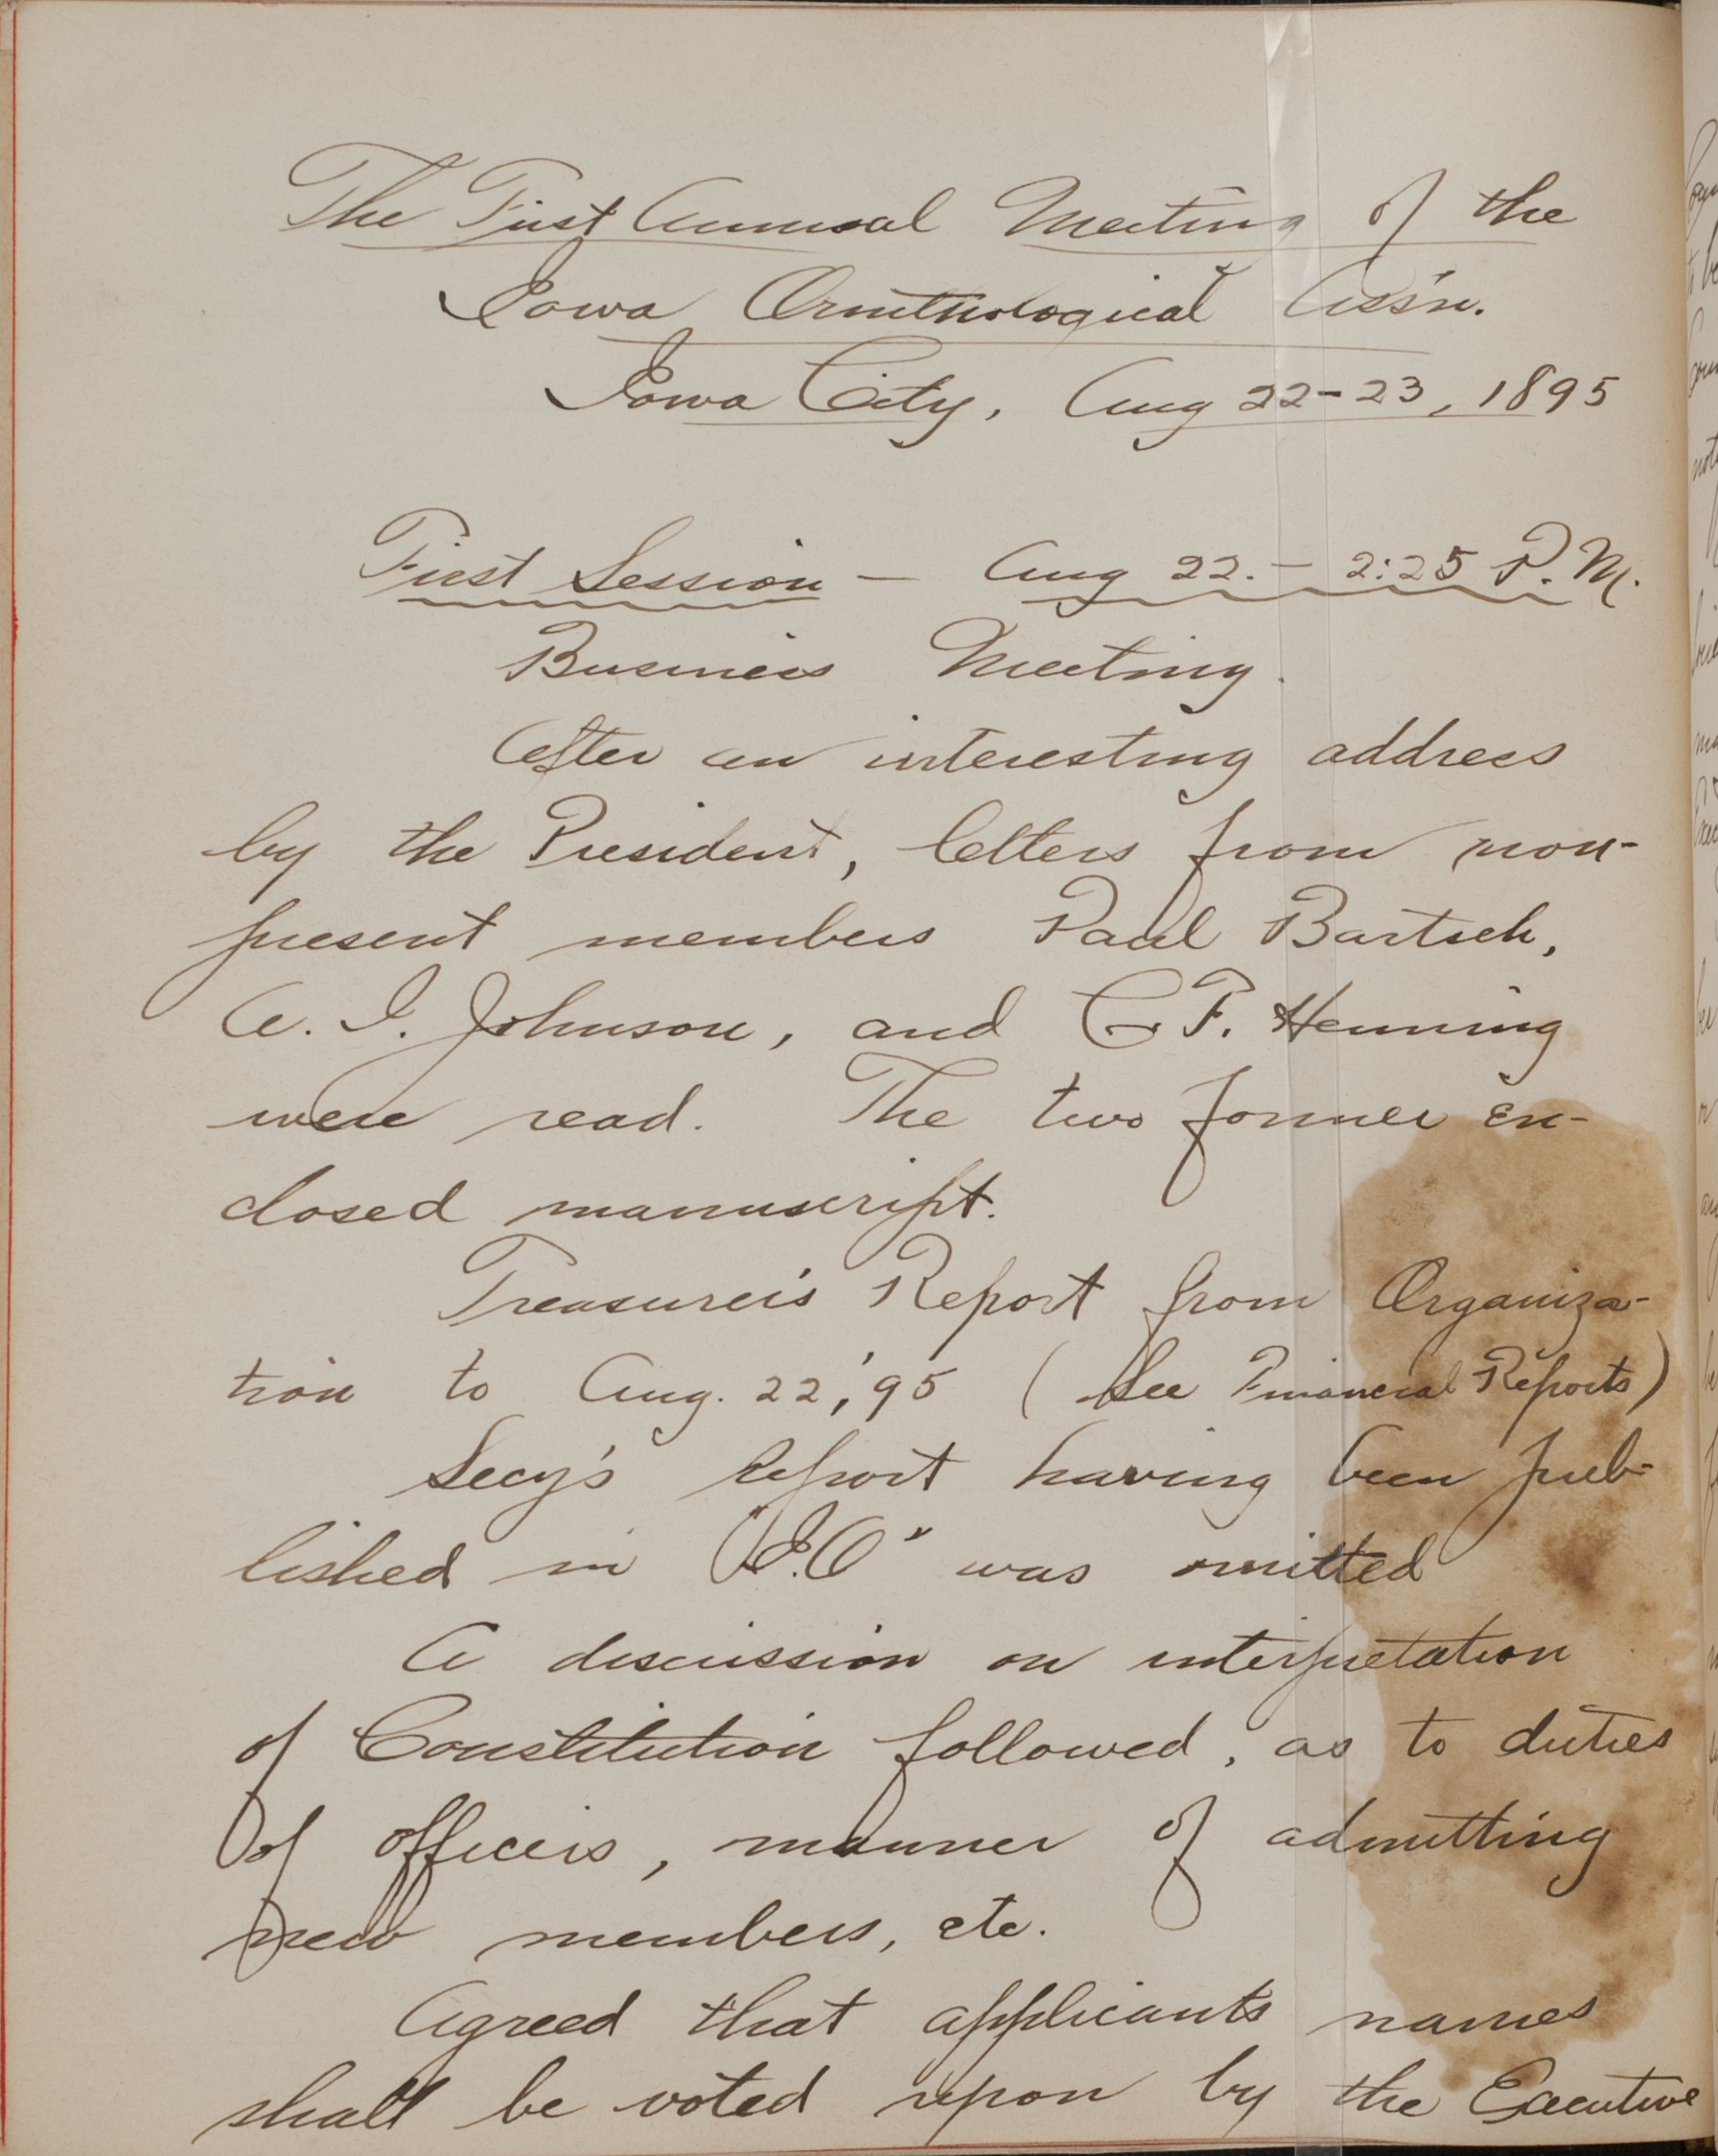 The First Annual Meeting of the
Iowa Ornithological Ass'n.
Iowa City, Aug 22-23, 1895
First Session — Aug 22. — 2:25 P. M.
Business Meeting.
After an interesting address
by the President, letters from non-
present members Paul Bartsch,
A. I. Johnson, and C F. Henning
were read. The two former en-
closed manuscript.
Treasurer's Report from Organiza-
tion to Aug. 22, '95 (See Financial Reports)
Secy's report having been pub-
lished in "I.O" was omitted
A discussion on interpretation
of Constitution followed, as to duties
of officers, manner of admitting
new members, etc.
Agreed that applicants names
shall be voted upon by the Executive